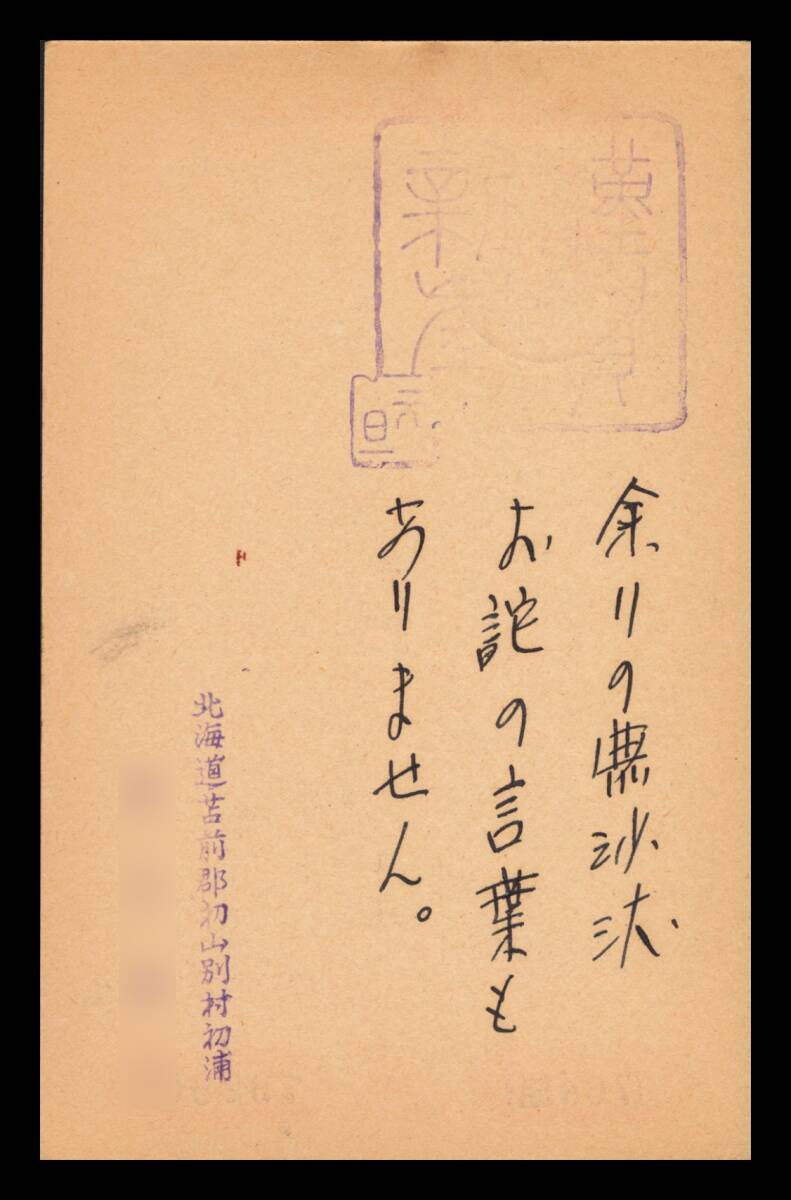 謹賀
新年
元旦
余りの無沙汰
お詫の言葉も
ありません。
北海道苫前郡初山別村初浦